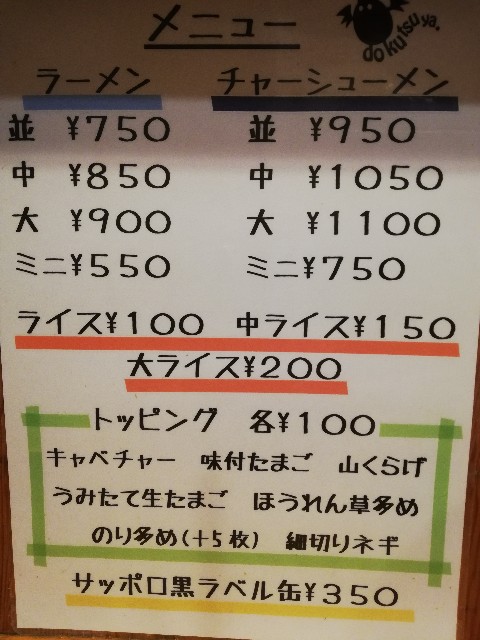 メニュー
dokutsuya.
ラーメン
並 ¥750
中 ¥850
大 ¥900
ミニ¥550
チャーシューメン
並 ¥950
中 ¥1050
大 ¥1100
ミニ¥750
ライス¥100 中ライス¥150
大ライス¥200
トッピング 各¥100
キャベチャー 味付たまご 山くらげ
うみたて生たまご ほうれん草多め
のり多め(+5枚) 細切りネギ
サッポロ黒ラベル缶¥350